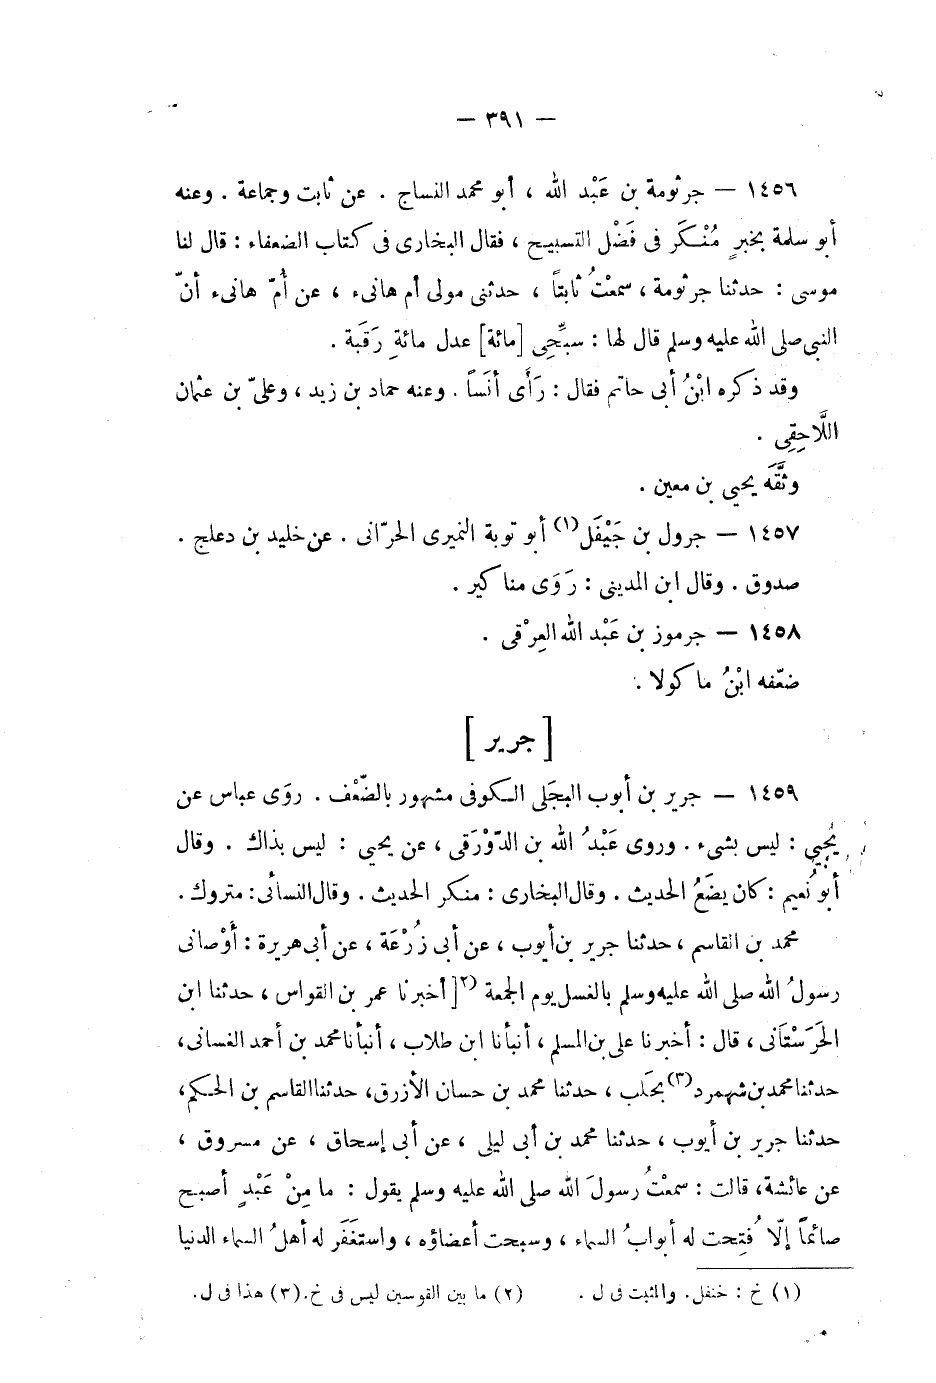 — ٣٩١ —
١٤٥٦ — جرثومة بن عَبْد الله ، أبو محمد النساج . عن ثابت وجماعة . وعنه
أبو سلمة بخبرٍ مُنْكَر فى فَضْل التسبيح ، فقال البخارى فى كتاب الضعفاء : قال لنا
موسى : حدثنا جرثومة ، سمعْتُ ثابتاً ، حدثنى مولى أم هانىء ، عن أُمّ هانىء أنّ
النبى صلى الله عليه وسلم قال لها : سبِّحِى [مائة] عدل مائةِ رَقَبة .
وقد ذكره ابْنُ أبى حاتم فقال : رَأَى أنَساً . وعنه حماد بن زيد ، وعلىّ بن عثمان
اللَّاحِقِى .
وثَّقَه يحيى بن معين .
١٤٥٧ — جرول بن جَيْفَل(١) أبو توبة النميرى الحرّانى . عن خليد بن دعلج .
صدوق . وقال ابن المدينى : رَوَى مناكير .
١٤٥٨ — جرموز بن عَبْد الله العِرْقى .
ضعّفه ابْنُ ماكولا .
[ جرير ]
١٤٥٩ — جرير بن أيوب البجَلى الكوفى مشهور بالضّعْف . روَى عباس عن
يُحيى : ليس بشىء . وروى عَبْدُ الله بن الدّوْرَقى ، عن يحيى : ليس بذاك . وقال
أبو نُعيم : كان يضَعُ الحديث . وقال البخارى : منكر الحديث . وقال النسائى : متروك .
محمد بن القاسم ، حدثنا جرير بن أيوب ، عن أبى زُرْعَة ، عن أبى هريرة : أَوْصانى
رسولُ الله صلى الله عليه وسلم بالغسل يوم الجمعة (٢[أخبرنا عمر بن القواس ، حدثنا ابن
الحَرَسْتَانى ، قال : أخبرنا على بن المسلم ، أنبأنا ابن طلاب ، أنبأنا محمد بن أحمد الغسانى ،
حدثنا محمد بن شهمرد(٣) بحلَب ، حدثنا محمد بن حسان الأزرق، حدثنا القاسم بن الحكم،
حدثنا جرير بن أيوب ، حدثنا محمد بن أبى ليلى ، عن أبى إسحاق ، عن مسروق ،
عن عائشة، قالت : سمعْتُ رسولَ الله صلى الله عليه وسلم يقول : ما مِنْ عَبْدٍ أصبح
صائماً إلّا فُتِحت له أبوابُ السماء ، وسبحت أعضاؤه ، واستغْفَر له أهلُ السماء الدنيا
(١) خ : خنفل. والمثبت فى ل . (٢) ما بين القوسين ليس فى خ. (٣) هذا فى ل.